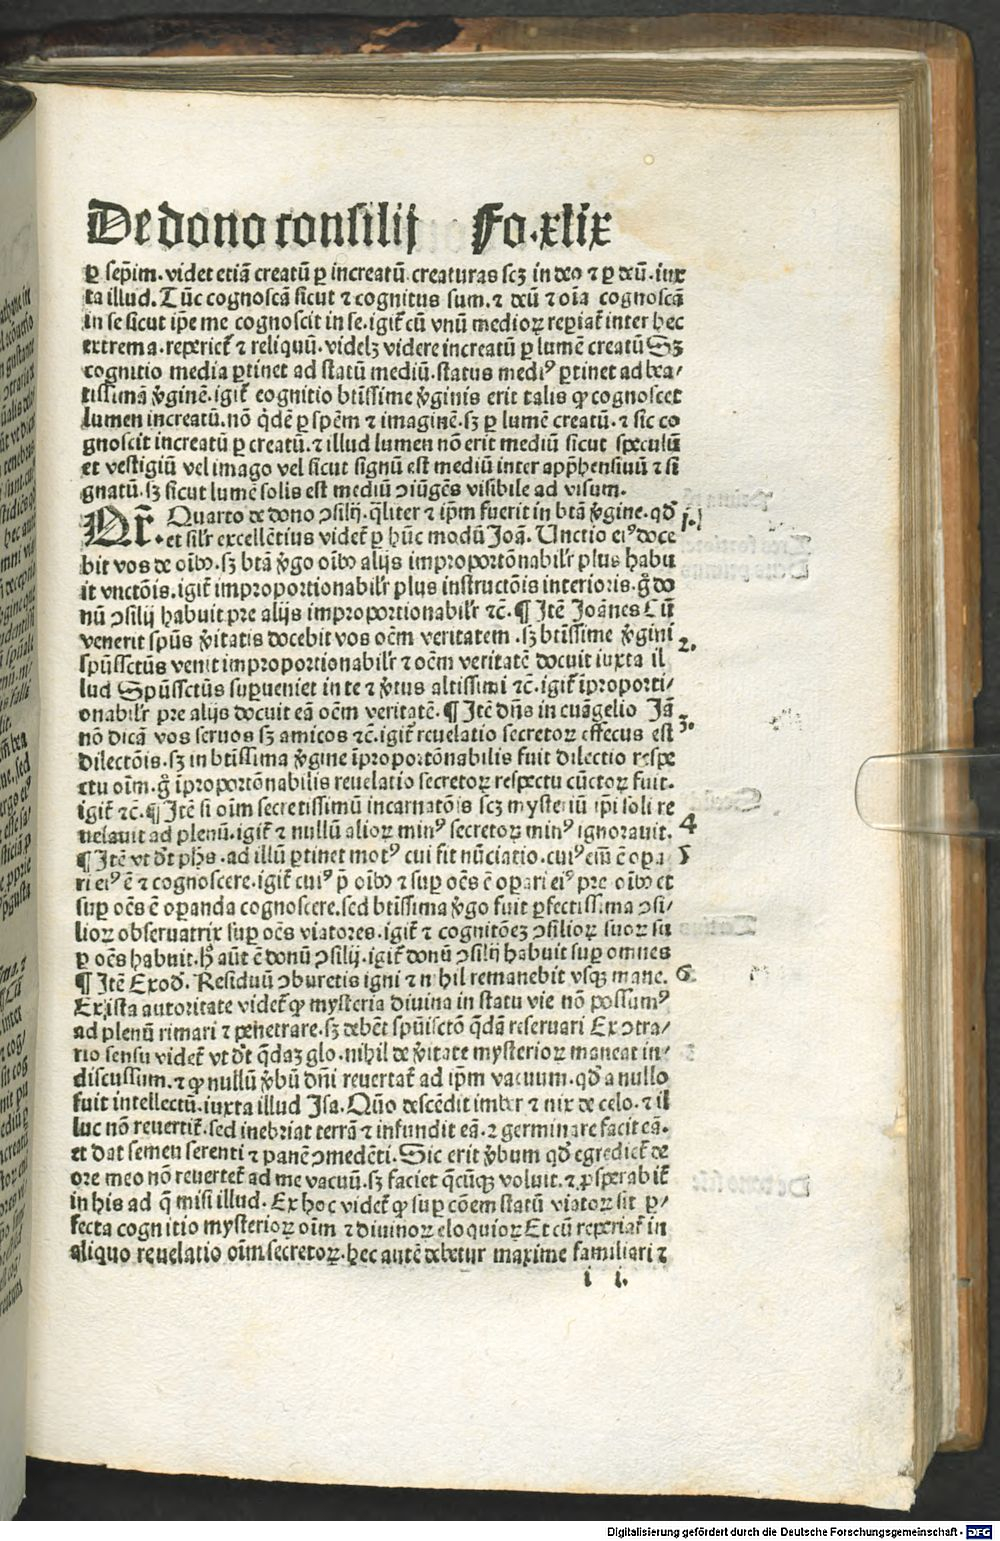 De dono consilij Fo.xlix
ꝑ sep̄im. videt etiā creatū ꝑ increatū creaturas scꝫ in deo ⁊ ꝑ deū. iux
ta illud. Tūc cognoscā sicut ⁊ cognitus sum. ⁊ deū ⁊ oīa cognoscā
in se sicut ip̄e me cognoscit in se. igit̄ cū vnū medioꝝ repiat̄ inter hec
extrema. reperiet̄ ⁊ reliquū. videlꝫ videre increatū ꝑ lumē creatū Sꝫ
cognitio media ꝑtinet ad statū mediū. status mediꝰ ꝑtinet ad bea/
tissimā v̄ginē. igit̄ cognitio btīssime v̄ginis erit talis ꝙ cognoscet
lumen increatū. nō q̄dē ꝑ spēm ⁊ imaginē. sꝫ ꝑ lumē creatū. ⁊ sic co
gnoscit increatū ꝑ creatū. ⁊ illud lumen nō erit mediū sicut speculū
et vestigiū vel imago vel sicut signū est mediū inter app̄hensiuū ⁊ si
gnatū. sꝫ sicut lumē solis est mediū ↄiūgēs visibile ad visum.
Qr̄. Quarto de dono ↄsilij. q̄liter ⁊ ip̄m fuerit in btā v̄gine. qd̄ 1.
et sil̄r excellētius videt̄ ꝑ hūc modū Joā. Unctio eiꝰ doce
bit vos de oībꝰ. sꝫ btā v̄go oībꝰ alijs improportōnabil̄r plus habu
it vnctōis. igit̄ improportionabil̄r plus instructōis interioris. g̊ do
nū ↄsilij habuit pre alijs improportionabil̄r ⁊c̄. ¶ Itē Joānes Cū
venerit spūs v̄itatis docebit vos oēm veritatem. sꝫ btīssime v̄gini 2.
spūssctūs venit improportionabil̄r ⁊ oēm veritatē docuit iuxta il
lud Spūssctūs supueniet in te ⁊ v̄tus altissimi ⁊c̄. igit̄ īproporti/
onabil̄r pre alijs docuit eā oēm veritatē. ¶ Itē dn̄s in euāgelio Jā
nō dicā vos seruos sꝫ amicos ⁊c̄. igit̄ reuelatio secretoꝝ effectus est 3.
dilectōis. sꝫ in btīssima v̄gine īproportōnabilis fuit dilectio respe
ctu oīm. g̊ īproportōnabilis reuelatio secretoꝝ respectu cūctoꝝ fuit.
igit̄ ⁊c̄. ¶ Itē si oīm secretissimū incarnatōis scꝫ mysteriū ip̄i soli re
uelauit ad plenū. igit̄ ⁊ nullū alioꝝ minꝰ secretoꝝ minꝰ ignorauit. 4
¶ Itē vt dt̄ phs. ad illū ꝑtinet motꝰ cui fit nūciatio. cuiꝰ eīm ē opa 5
ri eiꝰ ē ⁊ cognoscere. igit̄ cuiꝰ p̄ oībꝰ ⁊ suꝑ oēs ē oꝑari eiꝰ pre oībꝰ et
suꝑ oēs ē oꝑanda cognoscere. sed btīssima v̄go fuit ꝑfectissima ↄsi/
lioꝝ obseruatrix suꝑ oēs viatores. igit̄ ⁊ cognitōeꝫ ↄsilioꝝ suoꝝ su
ꝑ oēs habuit. hꝰ aūt ē donū ↄsilij. igit̄ donū ↄsilij habuit suꝑ omnes
¶ Itē Exod̄. Residuū ↄburetis igni ⁊ nihil remanebit vsqꝫ mane. 6
Ex ista autoritate videt̄ ꝙ mysteria diuina in statu vie nō possumꝰ
ad plenū rimari ⁊ penetrare. sꝫ debēt spūisctō q̄dā reseruari Ex ↄtra/
rio sensu videt̄ vt dt̄ q̄daꝫ glo. nihil de v̄itate mysterioꝝ maneat in/
discussum. ⁊ ꝙ nullū v̄bū dn̄i reuertat̄ ad ip̄m vacuum. qd̄ a nullo
fuit intellectū. iuxta illud Isa. Quō descēdit imber ⁊ nix de celo. ⁊ il
luc nō reuertit̄. sed inebriat terrā ⁊ infundit eā. ⁊ germinare facit eā.
et dat semen serenti ⁊ panē ↄmedēti. Sic erit v̄bum qd̄ egrediet̄ de
ore meo nō reuertet̄ ad me vacuū. sꝫ faciet q̄cūqꝫ voluit. ⁊ ꝓsperabit̄
in his ad q̄ misi illud. Ex hoc videt̄ ꝙ suꝑ cōem statū viatoꝝ sit ꝑ/
fecta cognitio mysterioꝝ oīm ⁊ diuinoꝝ eloquioꝝ Et cū reperiat̄ in
aliquo reuelatio oīm secretoꝝ. hec autē debetur maxime familiari ⁊
i i.
Digitalisierung gefördert durch die Deutsche Forschungsgemeinschaft - DFG